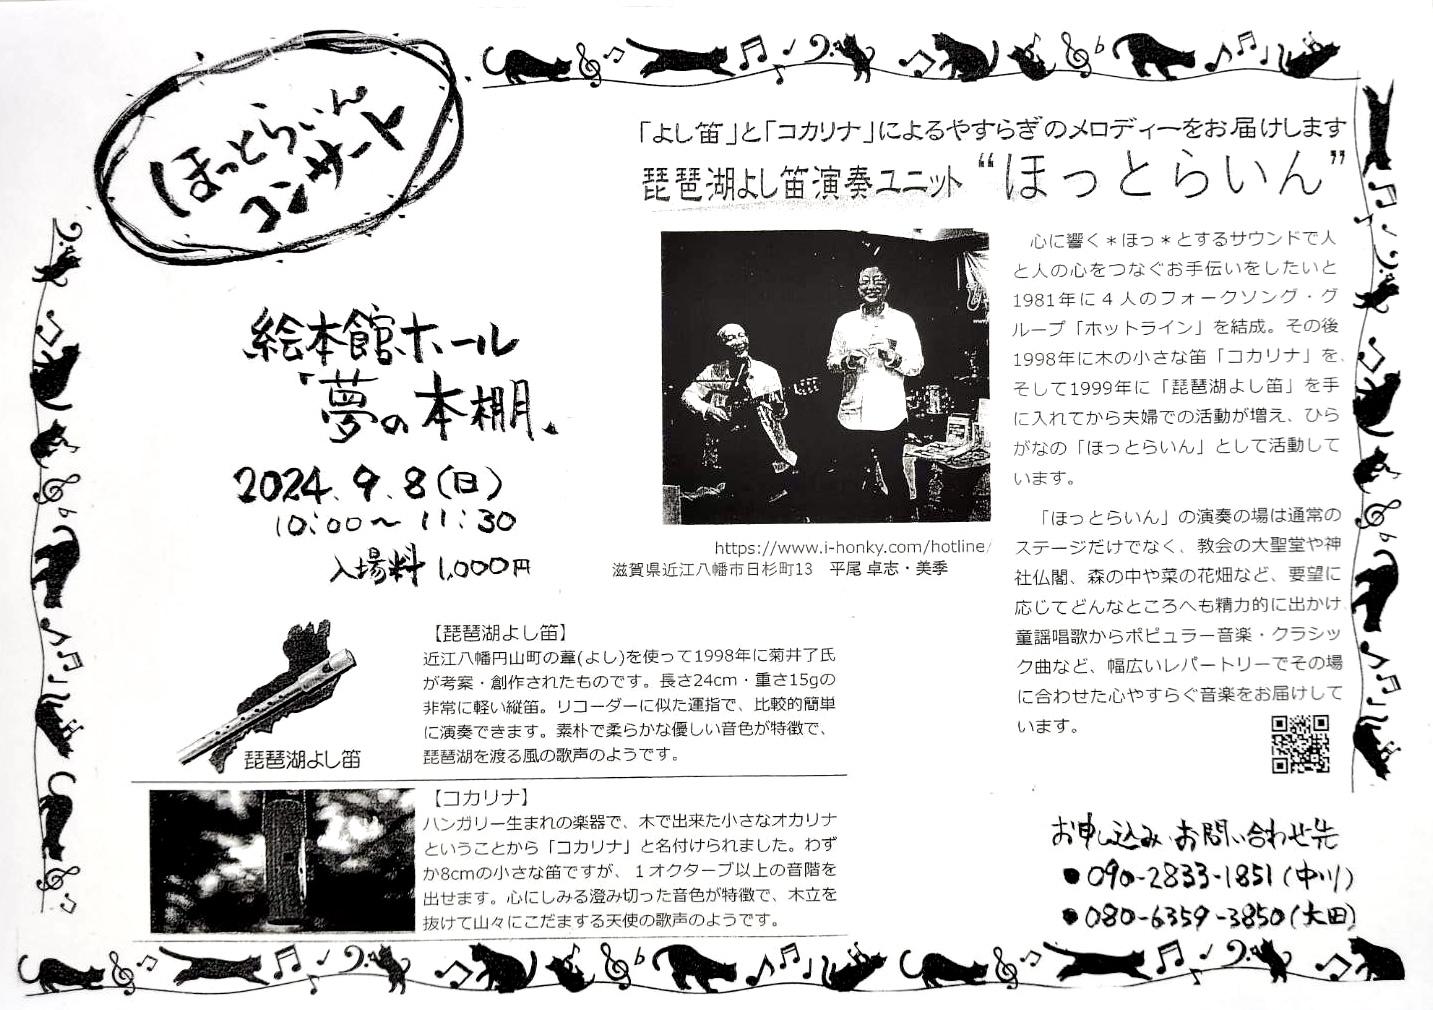 ほっとらいん
コンサート
絵本館ホール
「夢の本棚」
2024.9.8(日)
10:00〜11:30
入場料1,000円
「よし笛」と「コカリナ」によるやすらぎのメロディーをお届けします
琵琶湖よし笛演奏ユニット“ほっとらいん”
心に響く＊ほっ＊とするサウンドで人
と人の心をつなぐお手伝いをしたいと
1981年に４人のフォークソング・グ
ループ「ホットライン」を結成。その後
1998年に木の小さな笛「コカリナ」を、
そして1999年に「琵琶湖よし笛」を手
に入れてから夫婦での活動が増え、ひら
がなの「ほっとらいん」として活動して
います。
「ほっとらいん」の演奏の場は通常の
ステージだけでなく、教会の大聖堂や神
社仏閣、森の中や菜の花畑など、要望に
応じてどんなところへも精力的に出かけ
童謡唱歌からポピュラー音楽・クラシッ
ク曲など、幅広いレパートリーでその場
に合わせた心やすらぐ音楽をお届けして
います。
https://www.i-honky.com/hotline/
滋賀県近江八幡市日杉町13　平尾 卓志・美季
琵琶湖よし笛
【琵琶湖よし笛】
近江八幡円山町の葦(よし)を使って1998年に菊井了氏
が考案・創作されたものです。長さ24cm・重さ15gの
非常に軽い縦笛。リコーダーに似た運指で、比較的簡単
に演奏できます。素朴で柔らかな優しい音色が特徴で、
琵琶湖を渡る風の歌声のようです。
【コカリナ】
ハンガリー生まれの楽器で、木で出来た小さなオカリナ
ということから「コカリナ」と名付けられました。わず
か8cmの小さな笛ですが、１オクターブ以上の音階を
出せます。心にしみる澄み切った音色が特徴で、木立を
抜けて山々にこだまする天使の歌声のようです。
お申し込み・お問い合わせ先
●090-2833-1851(中川)
●080-6359-3850(太田)